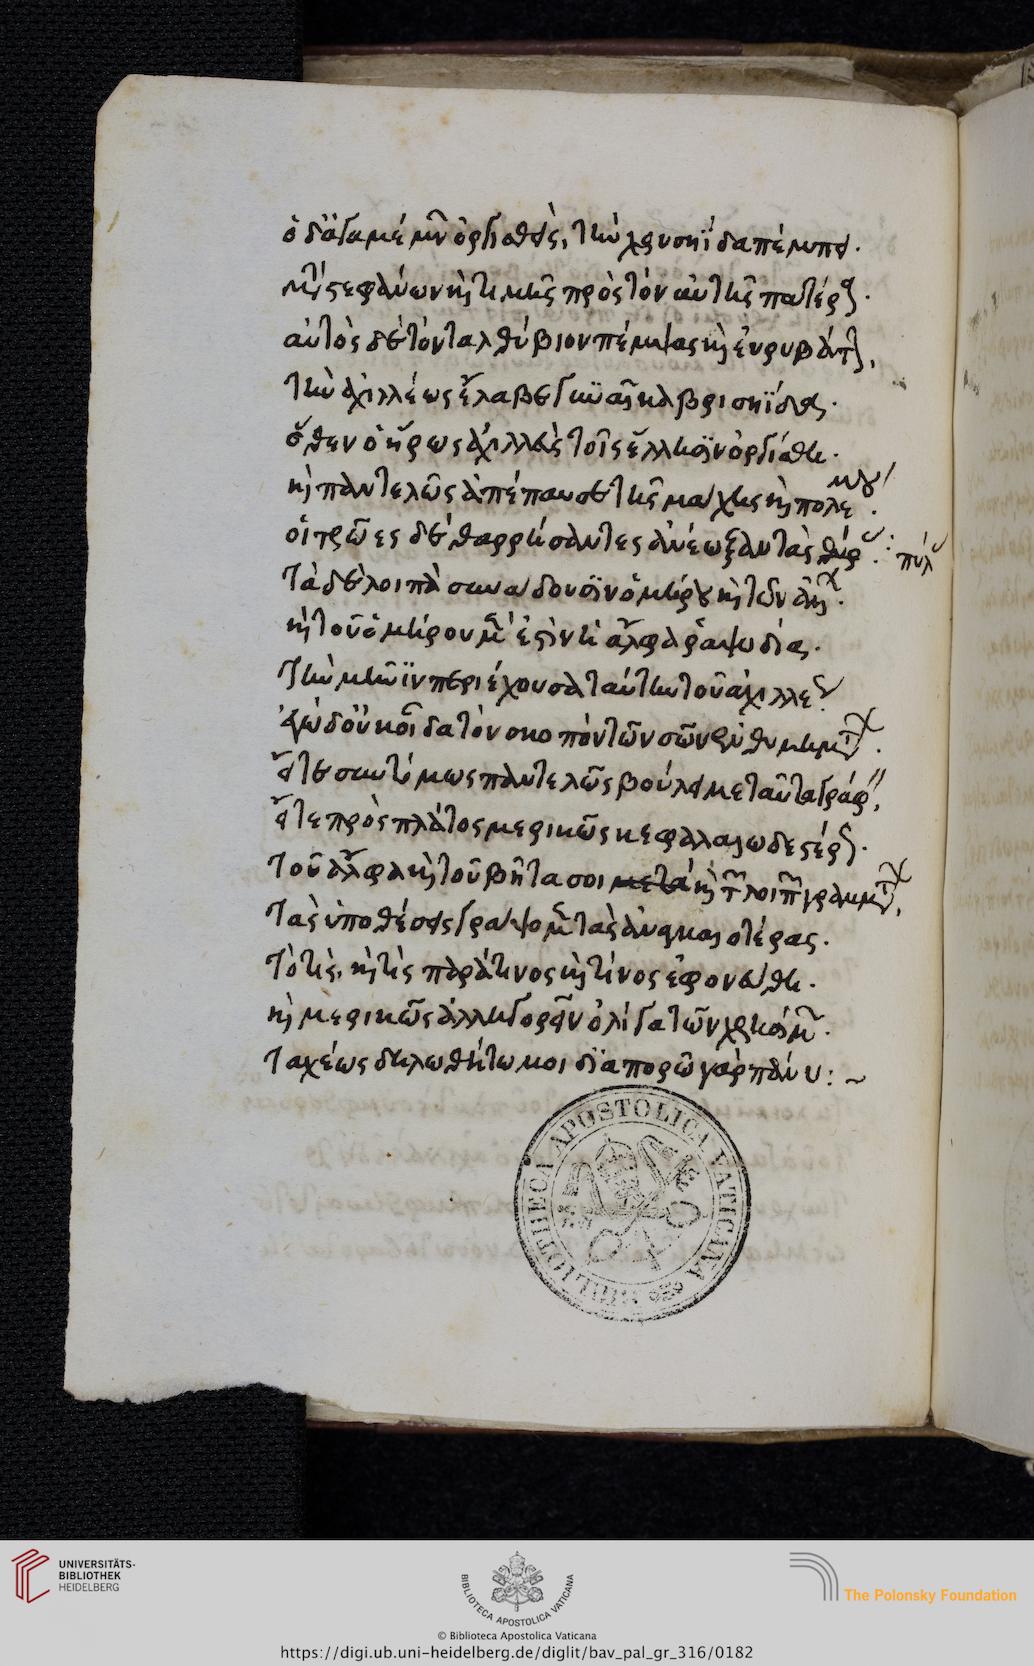 ὁ δ' ἀγαμέμνων ὀργισθεὶς, τὴν χρυσηΐδα πέμπει.
μετὰ στεφάνων καὶ τιμῆς πρὸς τὸν αὐτῆς πατέρα.
αὐτὸς δὲ τὸν ταλθύβιον πέμψας καὶ εὐρυβάτην,
τὴν ἀχιλλέως ἔλαβε γυναῖκα βρισηΐδα.
ὅθεν ὁ ἥρως ἀχιλλεὺς τοῖς ἕλλησιν ὀργίσθη.
καὶ παντελῶς ἀπέπαυσε τῆς μάχης καὶ πολέμου.
οἱ τρῶες δὲ θαρρήσαντες ἀνέωξαν τὰς θύρ πύλ
τὰ δὲ λοιπὰ συνάδουσιν ὁμήρου καὶ τῶν
καὶ τοῦ ὁμήρου μὲν ἐστὶν ἡ ἄλφα ῥαψωδία.
τὴν μῆνιν περιέχουσα ταύτην τοῦ ἀχιλλέως
ἐγὼ δ' οὐκ οἶδα τὸν σκοπὸν τῶν σῶν
εἴτε συντόμως παντελῶς βούλει με ταῦτα γράφειν,
εἴτε πρὸς πλάτος μερικῶς κεφαλαιωδεστέρως.
τοῦ ἄλφα καὶ τοῦ βῆτα σοι μετὰ καὶ τῶν λοιπῶν γραμμάτων,
τὰς ὑποθέσεις γράψομεν τὰς ἀναγκαιοτέρας.
τὸ τίς, καὶ τίς παρά τινος καὶ τίνος ἐφονεύθη.
καὶ μερικῶς ἀλληγορεῖν ὀλίγα τῶν χρησίμων.
ταχέως δηλωθήτω μοι διαπορῶ γὰρ πάνυ: ~
BIBLIOTHECA APOSTOLICA VATICANA
UNIVERSITÄTS-
BIBLIOTHEK
HEIDELBERG
BIBLIOTECA APOSTOLICA VATICANA
The Polonsky Foundation
© Biblioteca Apostolica Vaticana
https://digi.ub.uni-heidelberg.de/diglit/bav_pal_gr_316/0182